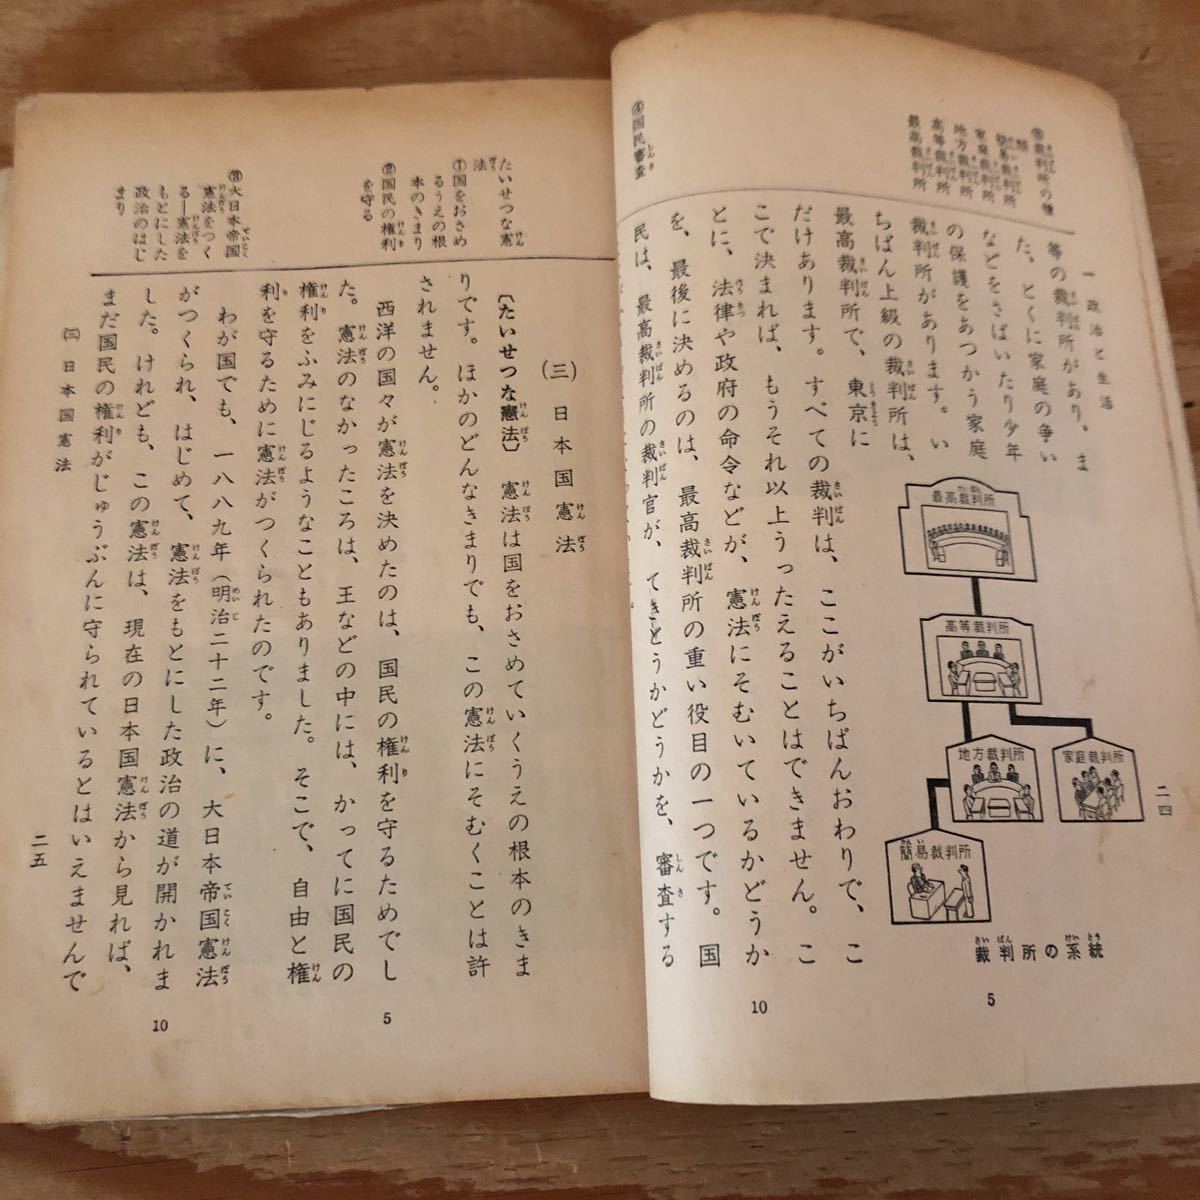 一 政治と生活
二四
③裁判所の種
類
簡易裁判所
家庭裁判所
地方裁判所
高等裁判所
最高裁判所
④国民審査
等の裁判所があり、ま
た、とくに家庭の争い
などをさばいたり少年
の保護をあつかう家庭
裁判所があります。い
ちばん上級の裁判所は、
最高裁判所で、東京に
だけあります。すべての裁判は、ここがいちばんおわりで、こ
こで決まれば、もうそれ以上うったえることはできません。こ
とに、法律や政府の命令などが、憲法にそむいているかどうか
を、最後に決めるのは、最高裁判所の重い役目の一つです。国
民は、最高裁判所の裁判官が、てきとうかどうかを、審査する
最高裁判所
高等裁判所
地方裁判所
家庭裁判所
簡易裁判所
裁判所の系統
5
10
たいせつな憲
法
①国をおさめ
るうえの根
本のきまり
②国民の権利
を守る
③大日本帝国
憲法をつく
る―憲法を
もとにした
政治のはじ
まり
(三) 日本国憲法
〔たいせつな憲法〕 憲法は国をおさめていくうえの根本のきま
りです。ほかのどんなきまりでも、この憲法にそむくことは許
されません。
西洋の国々が憲法を決めたのは、国民の権利を守るためでし
た。憲法のなかったころは、王などの中には、かってに国民の
権利をふみにじるようなこともありました。そこで、自由と権
利を守るために憲法がつくられたのです。
わが国でも、一八八九年(明治二十二年)に、大日本帝国憲法
がつくられ、はじめて、憲法をもとにした政治の道が開かれま
した。けれども、この憲法は、現在の日本国憲法から見れば、
まだ国民の権利がじゅうぶんに守られているとはいえませんで
5
10
(三) 日本国憲法
二五